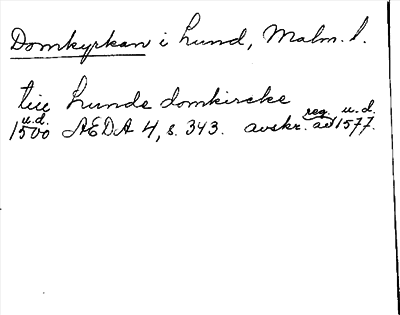 Domkyrkan i Lund, Malm. l.
till Lunde domkircke
u.d. reg. u.d.
1500 AEDA 4, s. 343. avskr. av 1577.